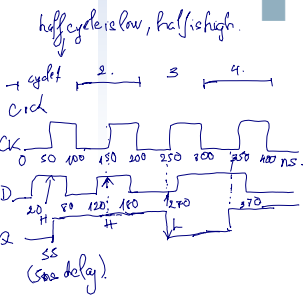 half cycle is low, half is high.
cycle 1 2. 3 4.
CK
0 50 100 150 200 250 300 350 400 ns.
D
20 80 120 180 270 370
H H L
Q
55
delay).